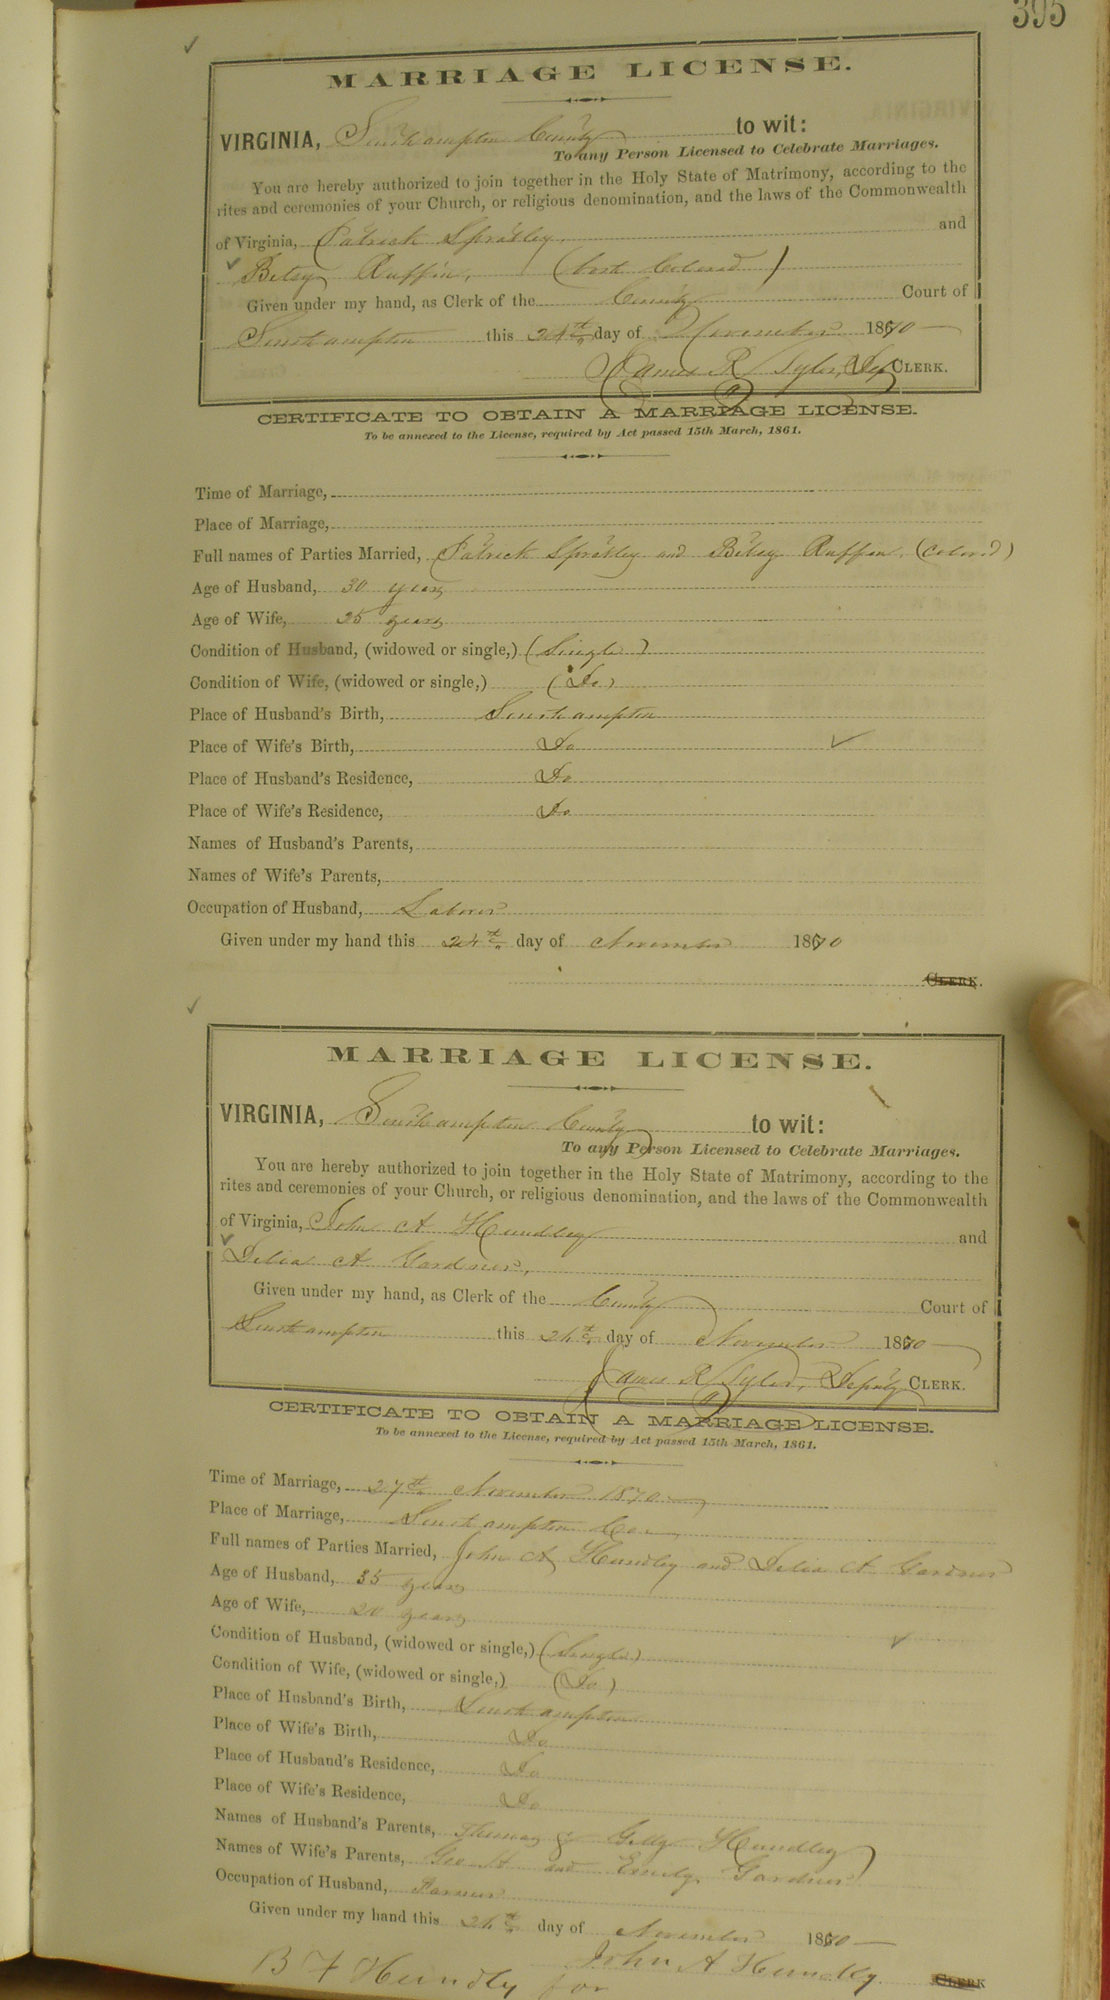 395
MARRIAGE LICENSE.
VIRGINIA, Southampton County to wit:
To any Person Licensed to Celebrate Marriages.
You are hereby authorized to join together in the Holy State of Matrimony, according to the
rites and ceremonies of your Church, or religious denomination, and the laws of the Commonwealth
of Virginia, Patrick Spratley and
Betsy Ruffin, (both Colored)
Given under my hand, as Clerk of the County Court of
Southampton this 24th day of November 1870
James R Tyler, Dep CLERK.
CERTIFICATE TO OBTAIN A MARRIAGE LICENSE.
To be annexed to the License, required by Act passed 15th March, 1861.
Time of Marriage,
Place of Marriage,
Full names of Parties Married, Patrick Spratley and Betsy Ruffin, (Colored)
Age of Husband, 30 years
Age of Wife, 25 years
Condition of Husband, (widowed or single,) (Single)
Condition of Wife, (widowed or single,) (Do)
Place of Husband's Birth, Southampton
Place of Wife's Birth, Do
Place of Husband's Residence, Do
Place of Wife's Residence, Do
Names of Husband's Parents,
Names of Wife's Parents,
Occupation of Husband, Laborer
Given under my hand this 24th day of November 1870
CLERK.
MARRIAGE LICENSE.
VIRGINIA, Southampton County to wit:
To any Person Licensed to Celebrate Marriages.
You are hereby authorized to join together in the Holy State of Matrimony, according to the
rites and ceremonies of your Church, or religious denomination, and the laws of the Commonwealth
of Virginia, John A Hundley and
Delia A Gardner,
Given under my hand, as Clerk of the County Court of
Southampton this day of November 1870
James R Tyler, Deputy CLERK.
CERTIFICATE TO OBTAIN A MARRIAGE LICENSE.
To be annexed to the License, required by Act passed 15th March, 1861.
Time of Marriage, 27th November 1870
Place of Marriage, Southampton Co
Full names of Parties Married, John A Hundley and Delia A Gardner
Age of Husband, 35 years
Age of Wife, 20 years
Condition of Husband, (widowed or single,) (Single)
Condition of Wife, (widowed or single,) (Do)
Place of Husband's Birth, Southampton
Place of Wife's Birth, Do
Place of Husband's Residence, Do
Place of Wife's Residence, Do
Names of Husband's Parents, Thomas & Hundley
Names of Wife's Parents, Geo H and Emily Gardner
Occupation of Husband, Farmer
Given under my hand this day of November 1870
John A Hundley CLERK
B F Hundley for